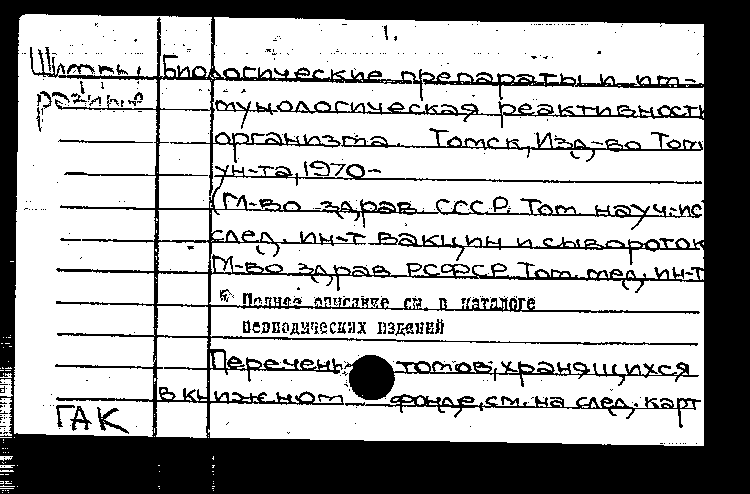 1.
Шифры Биологические препараты и им-
разные мунологическая реактивность
организма. Томск, Изд-во Том
ун-та, 1970-
(М-во здрав. СССР. Том. науч.-ис
след. ин-т вакцин и сывороток
М-во здрав РСФСР. Том. мед. ин-т
Полное описание см. в каталоге
периодических изданий
Перечень томов, хранящихся
в книжном фонде, см. на след. карт
ГАК